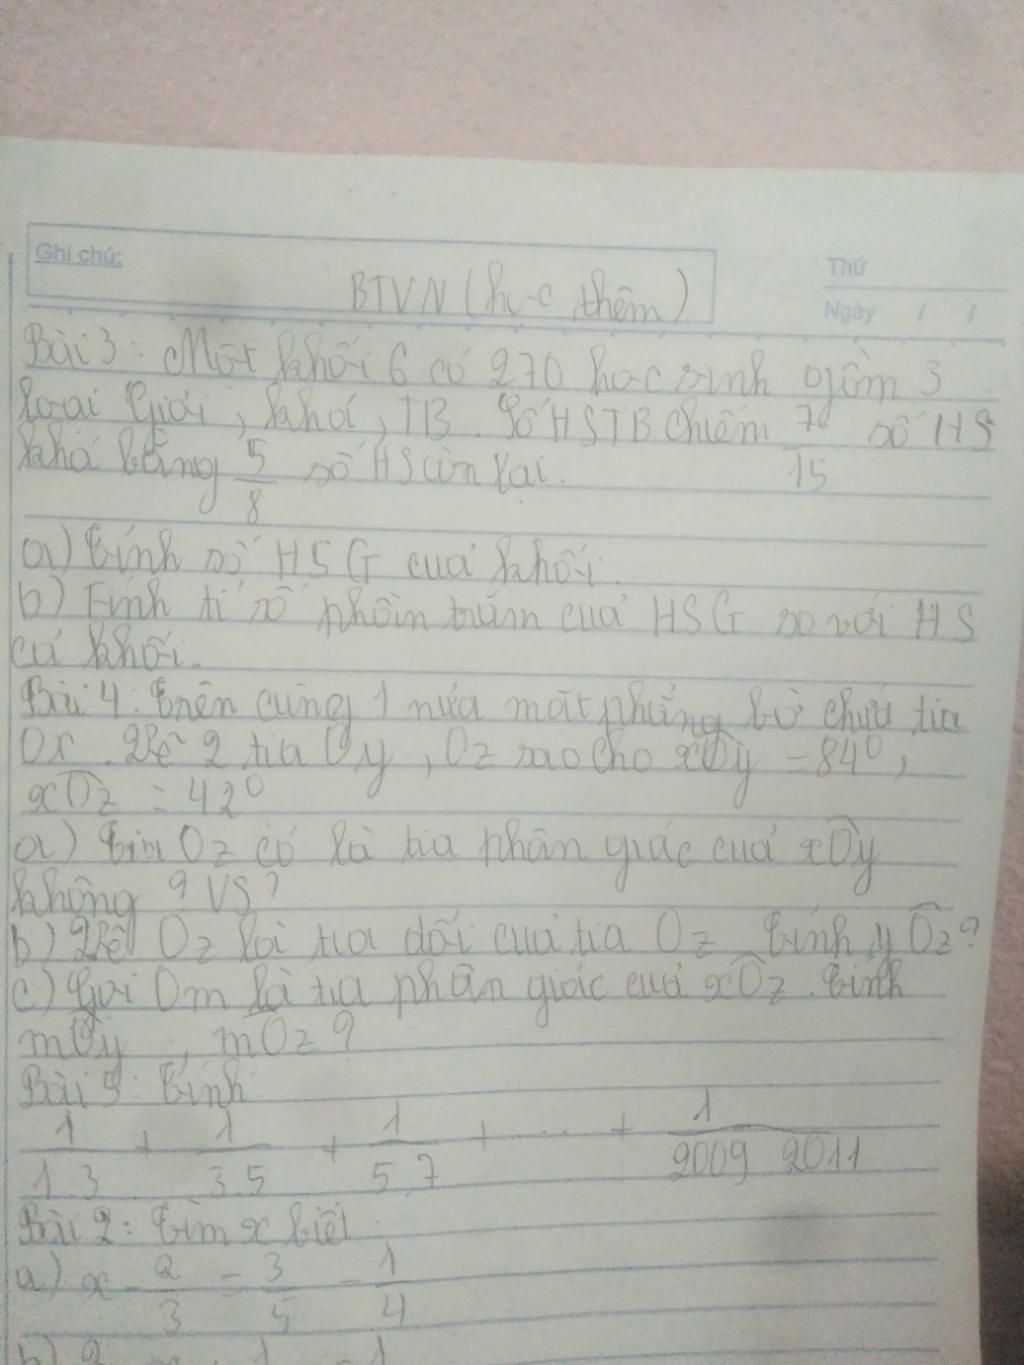 Ghi chú:
Thứ
BTVN (học thêm)
Ngày / /
Bài 3: Một khối 6 có 270 học sinh gồm 3
loại Giỏi, khá, TB. Số HSTB chiếm 7/15 số HS
khá bằng 5/8 số HS còn lại.
a) Tính số HSG của khối.
b) Tính tỉ số phần trăm của HSG so với HS
cả khối.
Bài 4: Trên cùng 1 nửa mặt phẳng bờ chứa tia
Ox. Kẻ 2 tia Oy, Oz sao cho xOy = 84°,
xOz = 42°
a) Oz có là tia phân giác của xOy
không? VS?
b) Kẻ Oz là tia đối của tia Oz. Tính yOz?
c) Gọi Om là tia phân giác của xOz. Tính
mOy, mOz?
Bài 5: Tính
1/1.3 + 1/3.5 + 1/5.7 + ... + 1/2009.2011
Bài 2: Tìm x biết
a) x - 2/3 = 3/5 - 1/4
b)